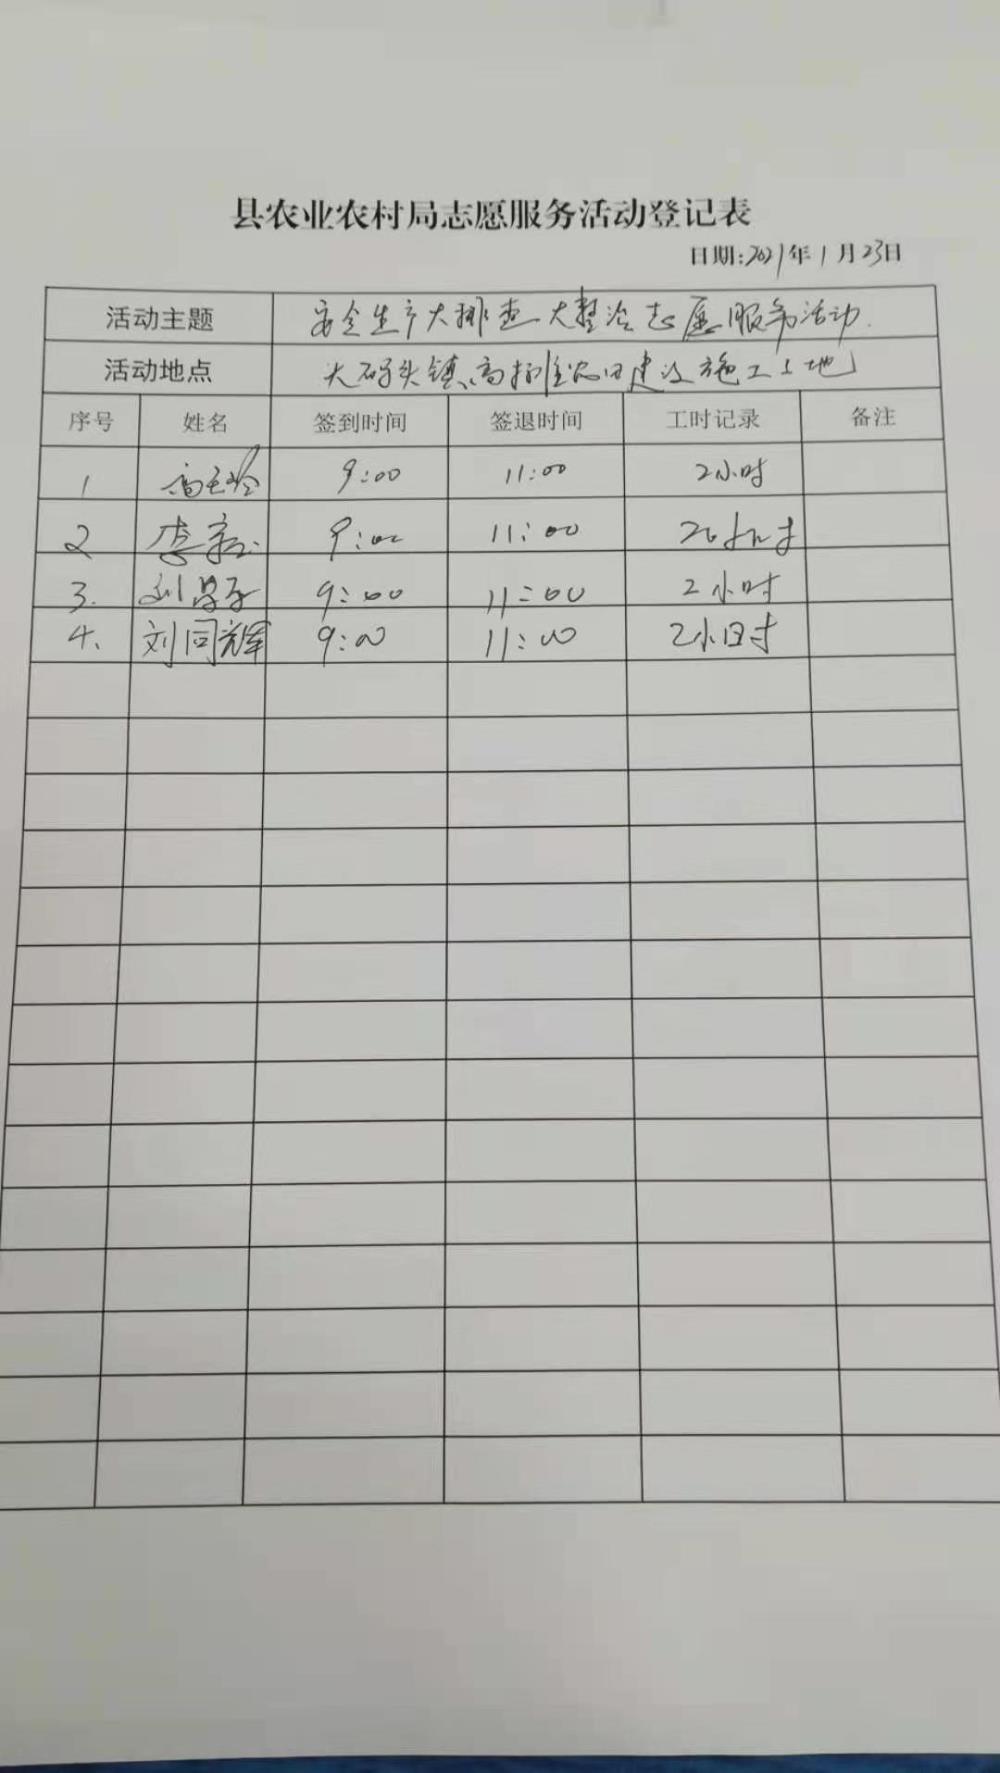 县农业农村局志愿服务活动登记表
日期:2021年1月23日
活动主题 安全生产大排查大整治志愿服务活动.
活动地点 大码头镇高标准农田建设施工工地
序号 姓名 签到时间 签退时间 工时记录 备注
1 9:00 11:00 2小时
2 李 9:00 11:00 2小时
3. 刘 9:00 11:00 2小时
4. 刘同辉 9:00 11:00 2小时